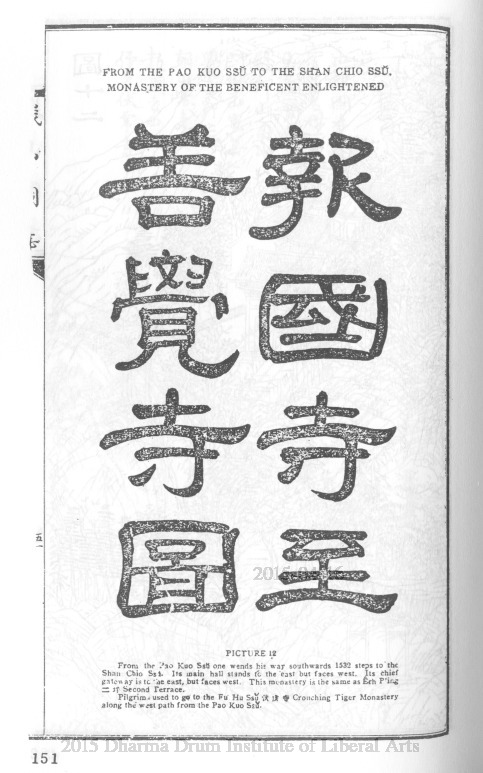 FROM THE PAO KUO SSŬ TO THE SHAN CHIO SSŬ.
MONASTERY OF THE BENEFICENT ENLIGHTENED
報國寺至
善覺寺圖
PICTURE 12
From the Pao Kuo Ssŭ one wends his way southwards 1532 steps to the
Shan Chio Ssŭ. Its main hall stands to the east but faces west. Its chief
gateway is to the east, but faces west. This monastery is the same as Erh P'ing
二坪 Second Terrace.
Pilgrims used to go to the Fu Hu Ssŭ 伏虎寺 Crouching Tiger Monastery
along the west path from the Pao Kuo Ssŭ.
151
2015 Dharma Drum Institute of Liberal Arts